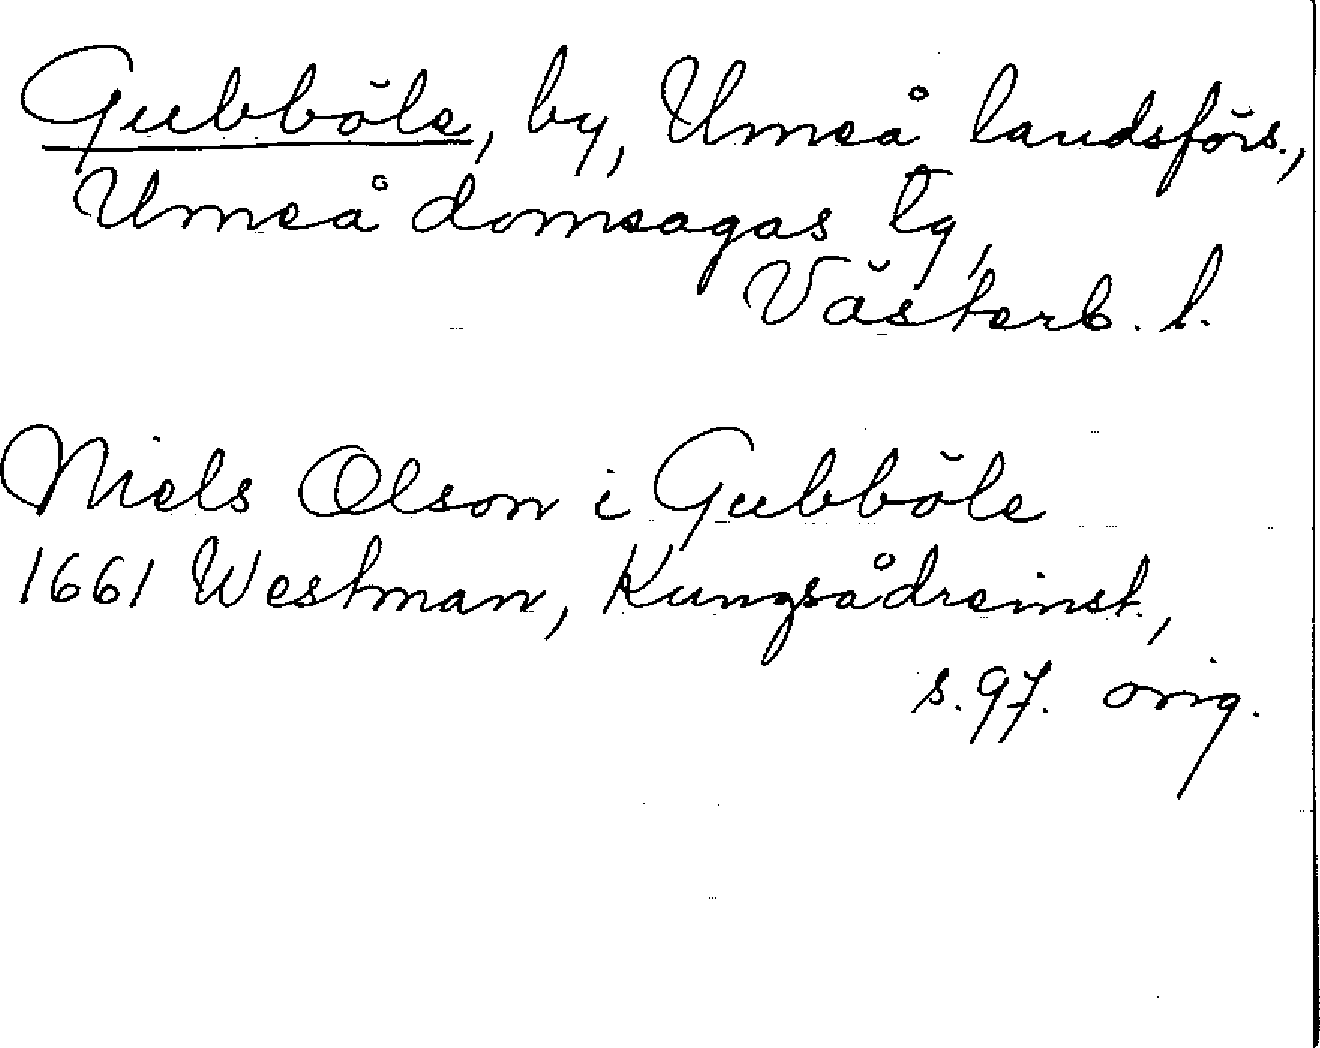 Gubböle, by, Umeå landsförs.,
Umeå domsagas tg,
Västerb. l.
Niels Olson i Gubböle
1661 Westman, Kungsådreinst.,
s. 97. orig.